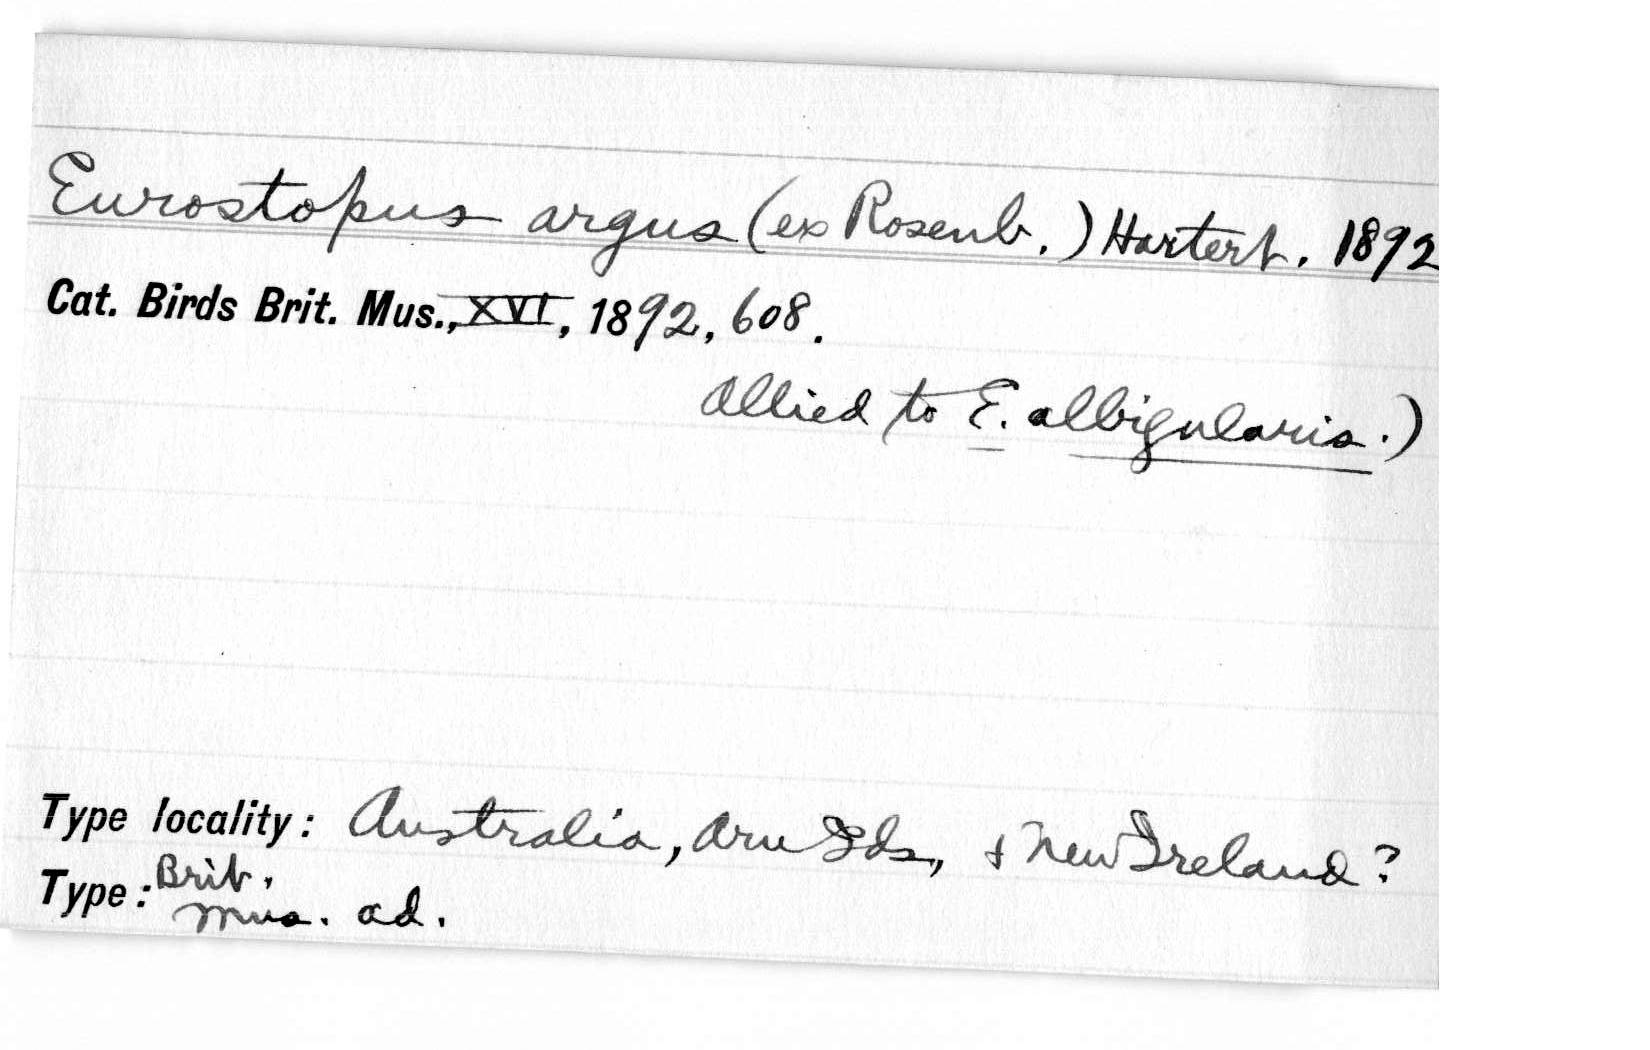 Eurostopus argus (ex Rosenb.) Hartert. 1892
Cat. Birds Brit. Mus., XVI, 1892, 608.
Allied to E. albigularis.)
Type locality: Australia, Aru Ids, & New Ireland?
Type: Brit.
Mus. ad.